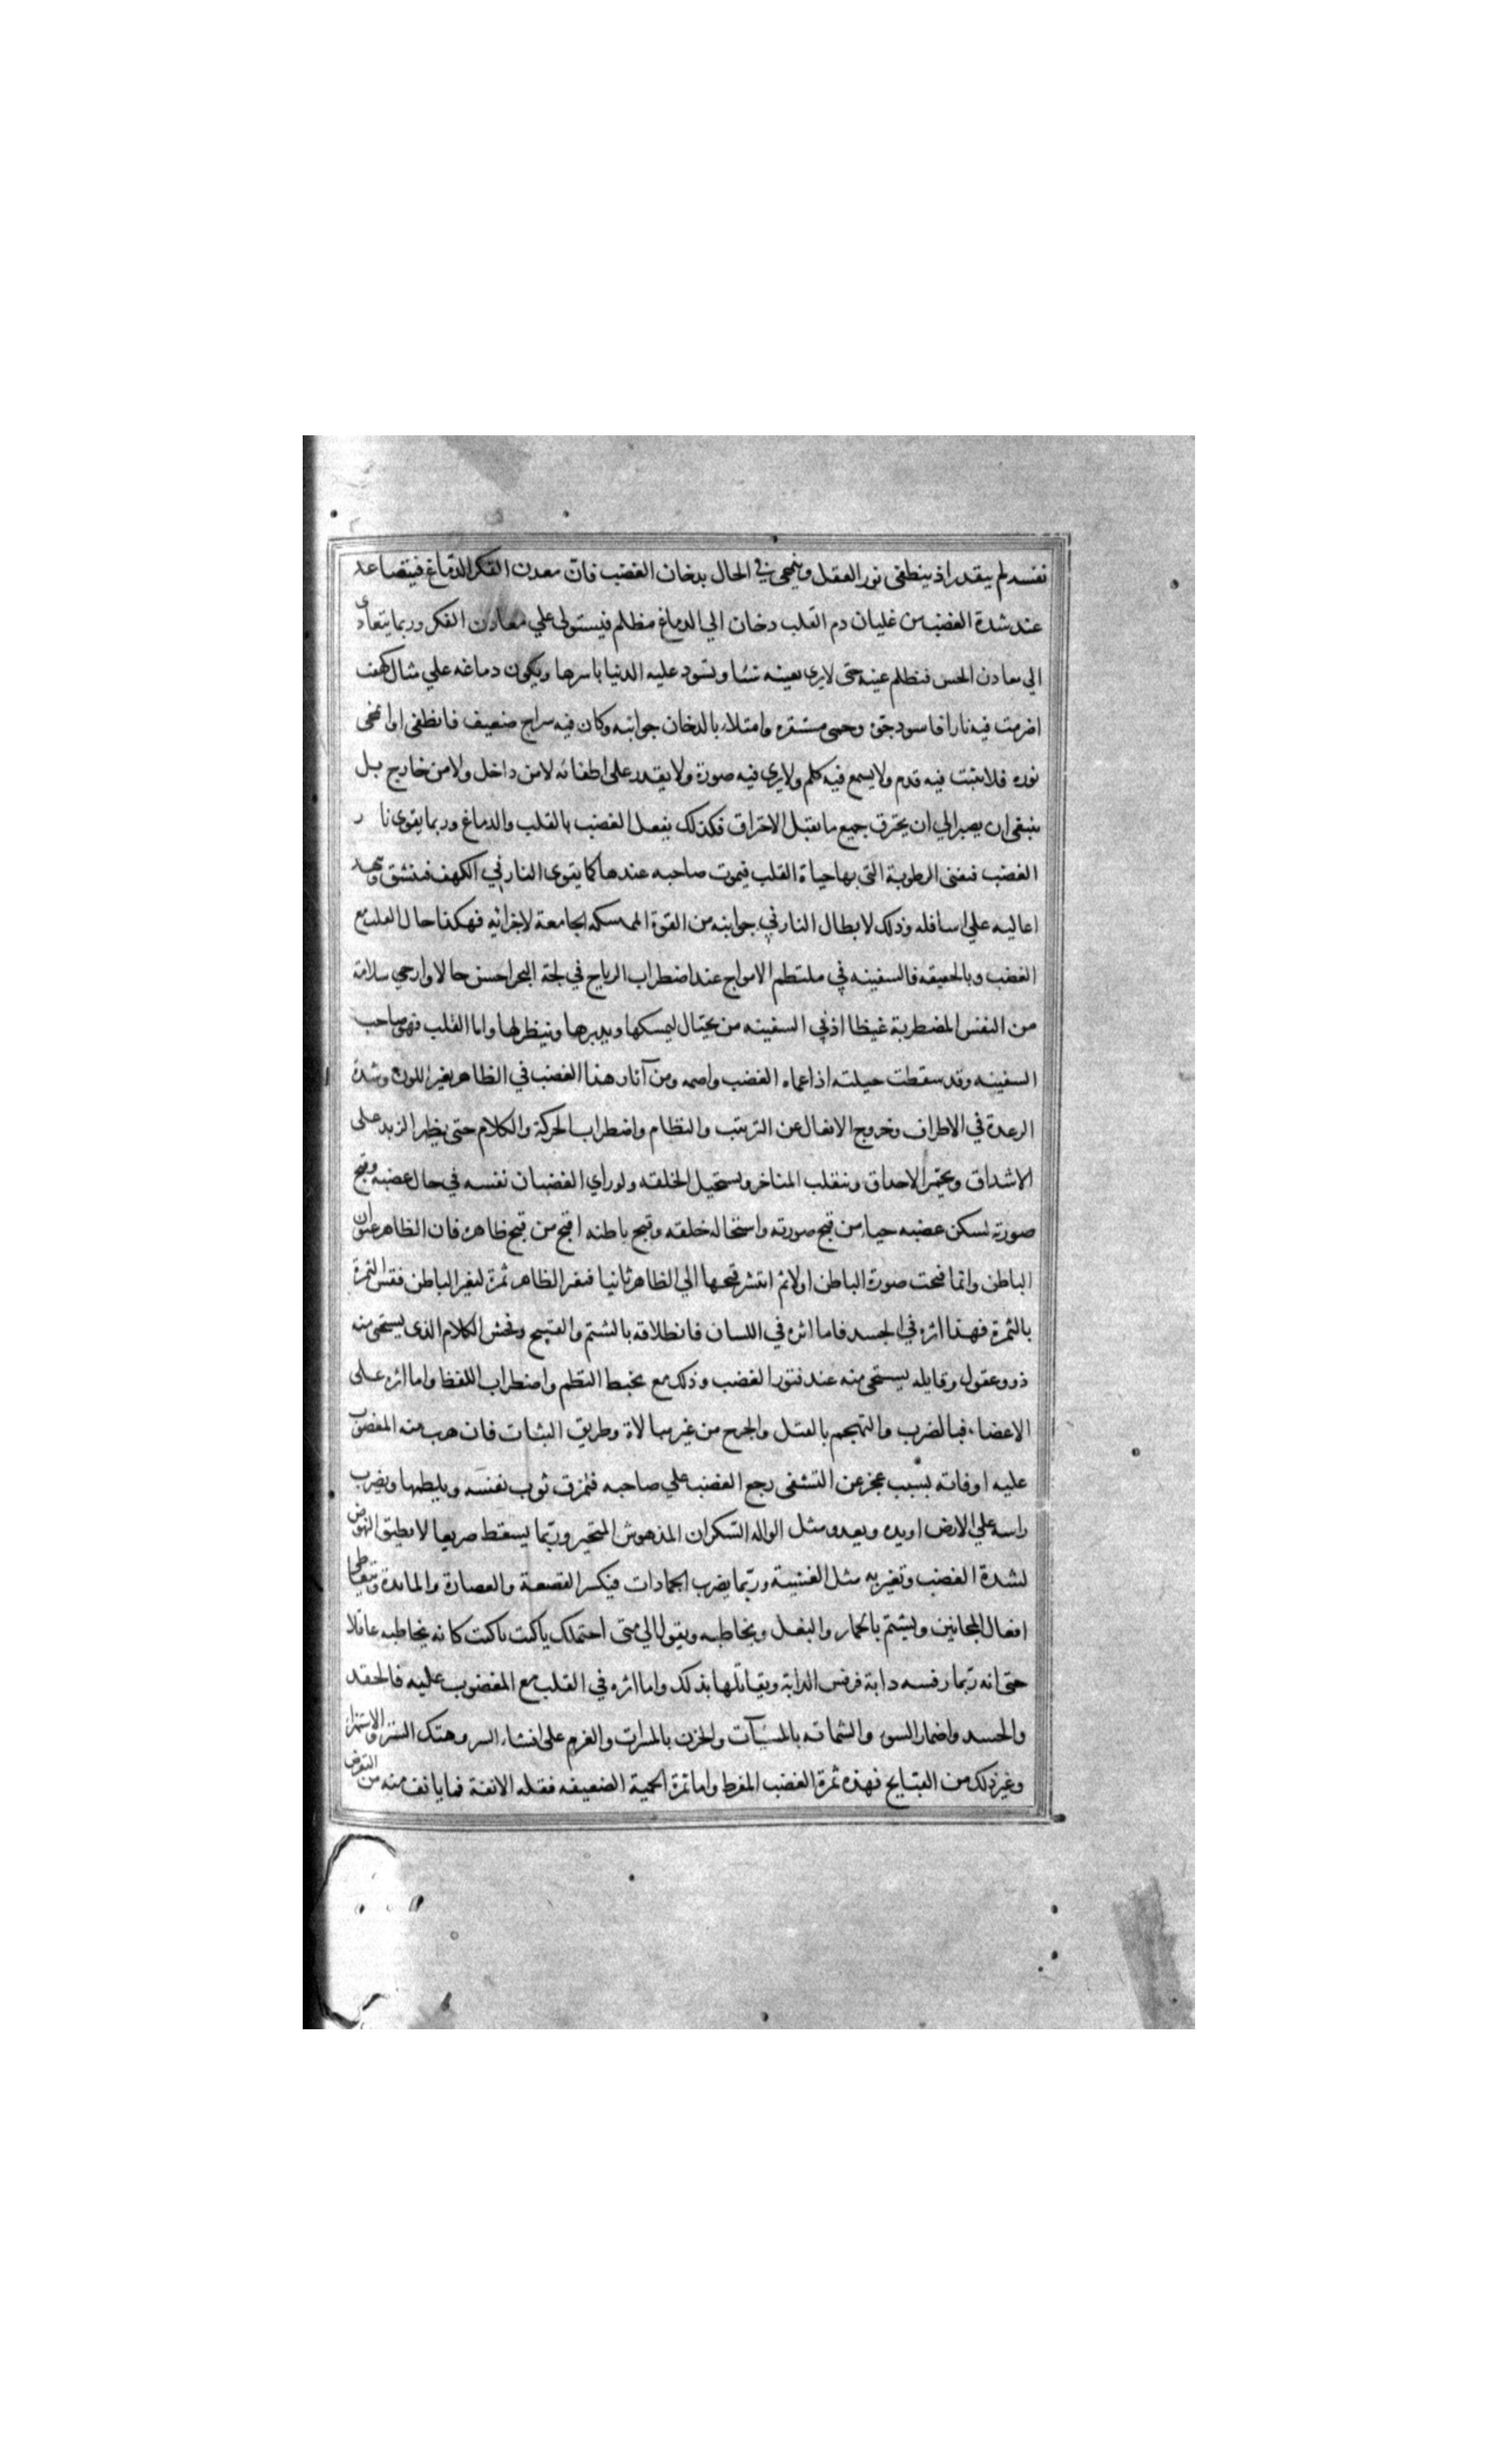 نفسه لم يقدر اذ ينطفى نور العقل وينمحى في الحال بدخان الغضب فانّ معدن الفكر الدّماغ فيتصاعد
عند شدة الغضب من غليان دم القلب دخان الي الدماغ مظلم فيستولى علي معادن الفكر وربما يتعادى
الي معادن الحس فتظلم عينه حتى لا يرى بعينه شئا وتسود عليه الدنيا باسرها ويكون دماغه علي مثال كهف
اضرمت فيه نارا فاسود جوّه وحمى مستقره وامتلاء بالدخان جوانبه وكان فيه سراج ضعيف فانطفى او انمحى
نوره فلا يثبت فيه قدم ولا يسمع فيه كلم ولا يرى فيه صورة ولا يقدر على اطفائه لا من داخل ولا من خارج بل
ينبغى ان يصبر الي ان يحترق جميع ما يقبل الاحتراق فكذلك يفعل الغضب بالقلب والدماغ وربما يقوى نار
الغضب فيفنى الرطوبة التى بها حياة القلب فيموت صاحبه عندها كما يقوى النار في الكهف فينشق وتهد
اعاليه علي اسافله وذلك لابطال النار في جوانبه من القوة الممسكه الجامعة لاجزائه فهكذا حال القلب مع
الغضب وبالحقيقه فالسفينه في ملتطم الامواج عند اضطراب الرياح في لجة البحر احسن حالا وارجي سلامة
من النفس المضطربة غيظا اذ في السفينه من يحتال ليمسكها ويدبرها وينظر لها واما القلب فهو صاحب
السفينه وقد سقطت حيلته اذ اعماه الغضب واصمه ومن آثار هذا الغضب في الظاهر تغير اللون وشدة
الرعدة في الاطراف وخروج الافعال عن الترتيب والنظام واضطراب الحركة والكلام حتى يظهر الزبد على
الاشداق ويحمّر الاحداق وينقلب المناخر ويستحيل الخلقه ولو راي الغضبان نفسه في حال غضبه وقبح
صورته لسكن غضبه حياء من قبح صورته واستحاله خلقه وقبح باطنه اقبح من قبح ظاهره فان الظاهر عنوان
الباطن وانما قبحت صورة الباطن اولا ثم انتشر قبحها الي الظاهر ثانيا فتغير الظاهر ثمرة لتغير الباطن فقس الثمرة
بالثمرة فهذا اثره في الجسد فاما اثره في اللسان فانطلاقه بالشتم والقبيح وفحش الكلام الذى يستحى منه
ذوو عقول وقايله يستحى منه عند فتور الغضب وذلك مع تخبط النظم واضطراب اللفظ واما اثره على
الاعضاء فبالضرب والتهجم بالقتل والجرح من غير مبالاة وطريق البثات فان هرب منه المغضوب
عليه اوفاته بسبب عجز عن التشفى رجع الغضب علي صاحبه فيمزق ثوب نفسه ويلطمها ويضرب
راسه علي الارض او يده ويعدو مثل الواله السّكران المدهوش المتحير وربّما يسقط صريعا لا يطيق النهوض
لشدة الغضب وتغيريه مثل الغشية وربّما يضرب الجمادات فيكسر القصعة والعصارة والمايدة ويتعاطى
افعال المجانين ويشتم بالحمار والبغل ويخاطبه ويقول الي متى احتملك ياكيت ياكيت كانه يخاطبه عاقلا
حتى انه ربّما رفسه دابة فرفس الدابة ويقابلها بذلك واما اثره في القلب مع المغضوب عليه فالحقد
والحسد واضمار السوء والشماته بالمسيآت والحزن بالمسرات والعزم على افشاء السر وهتك الستر والاستهزاء
وغير ذلك من القبايح فهذه ثمرة الغضب المفرط واما ثمرة الحمية الضعيفه فقله الانفة فيما يانف منه من التعرض